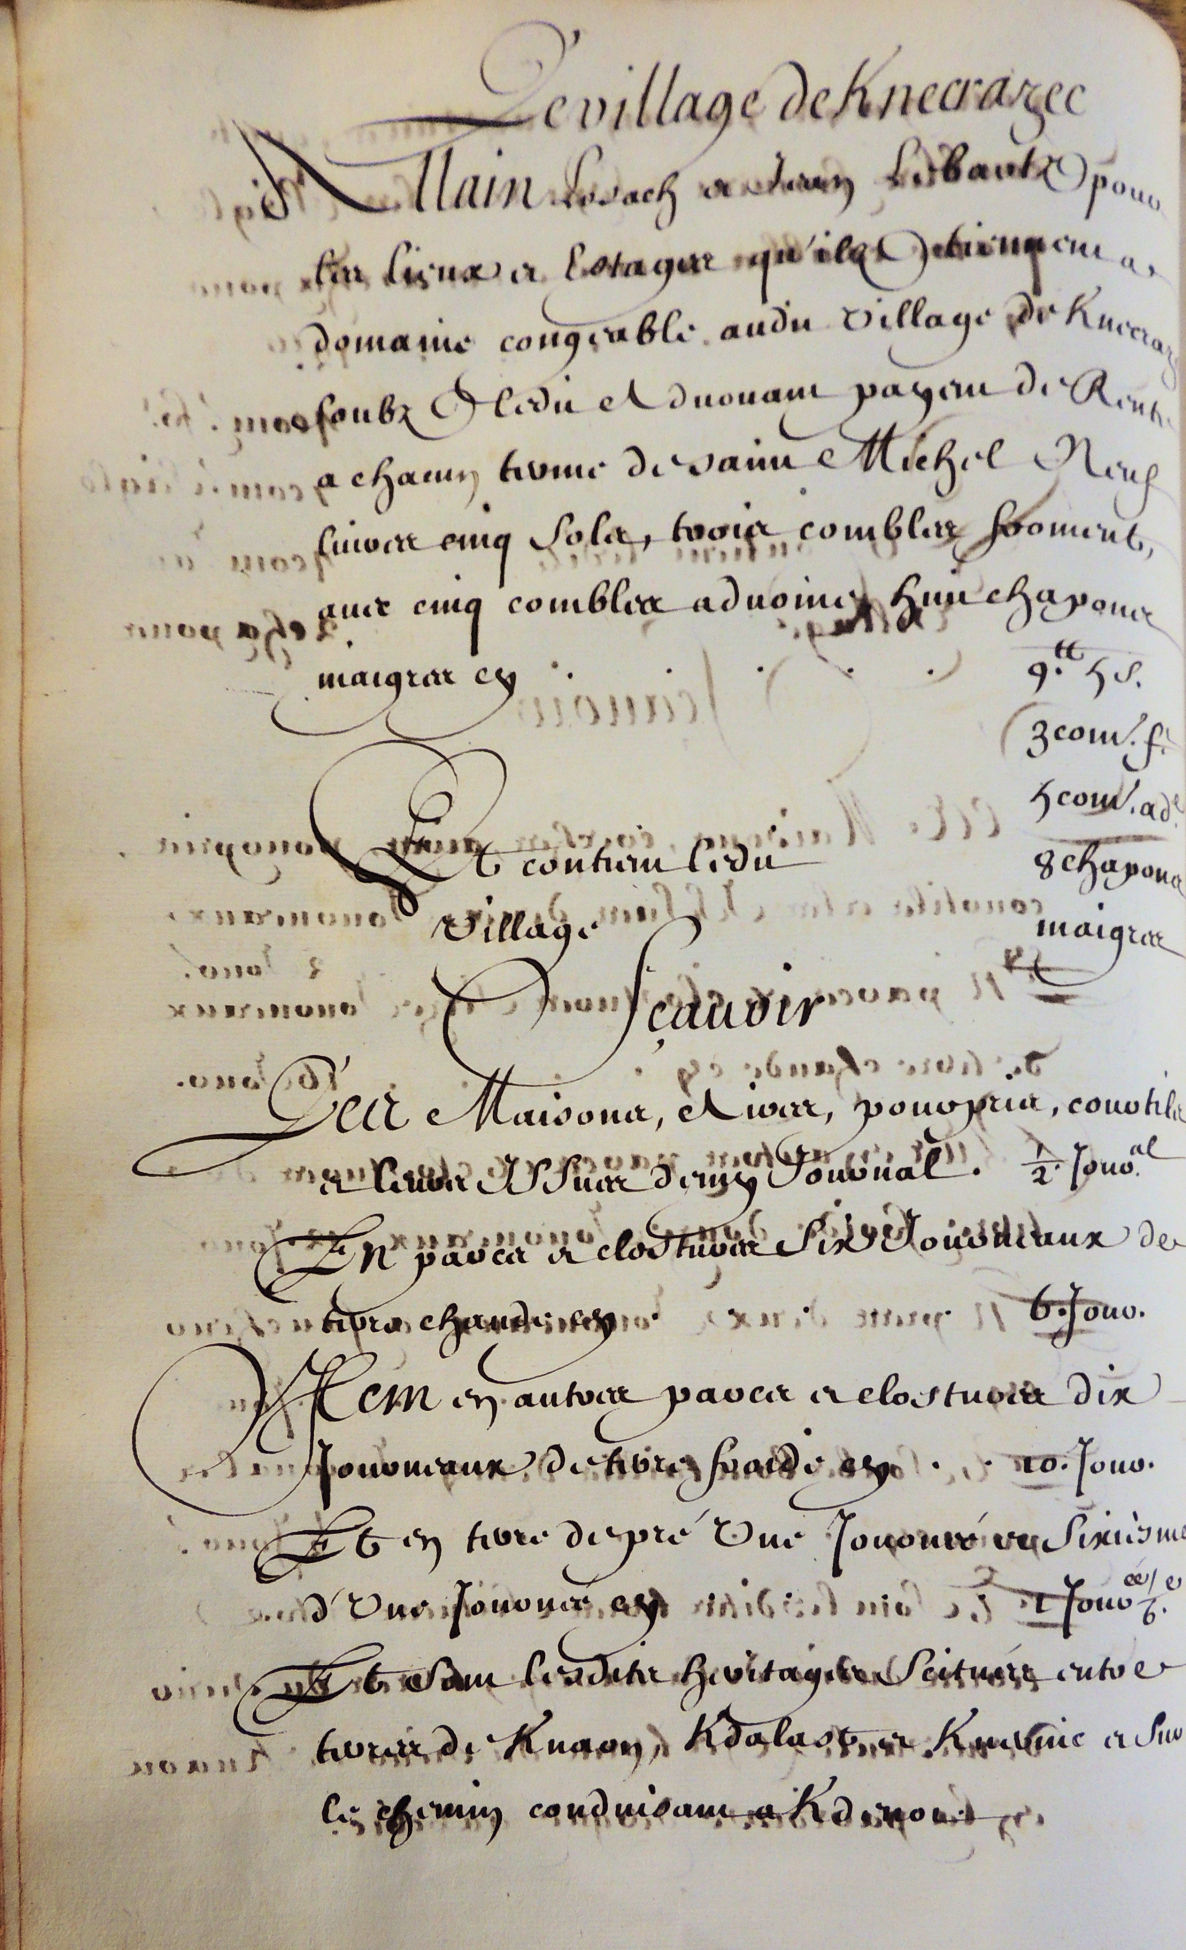 Le village de Knecrazec
Allain Losach et Jean Lesbautz pour
les lieux et Estages qu'ils detiennent a
domaine congeable audit village de Knecraz
soubz ledit et devant payent de Rente
a chacun terme de saint Michel Neuf
livres cinq solz, trois combles froment,
avec cinq combles advoine, huit chapons
maigres cy . . . . 9.tt 5 s.
3 com. f.
5 com. ad.
8 chapons
maigres
Et contient ledit
village
sçauoir
En Maisons, Aires, pourpris, courtils
et leurs Issues demy Journal. ½. Jour.al
En parcs et clostures six Journeaux de
terre chaude cy . 6. Jour.
Item en autres parcs et clostures dix
Journeaux de terre froide cy . . 10. Jour.
Et en terre de pré Une Journée et sixiesme
d'Une Journée cy 1 Jour ée/ e 6.
Et sont lesdits heritages scitués entre
terres de Knaon, Kdalast, et Knevinic et sur
le chemin conduisant a Kdenou